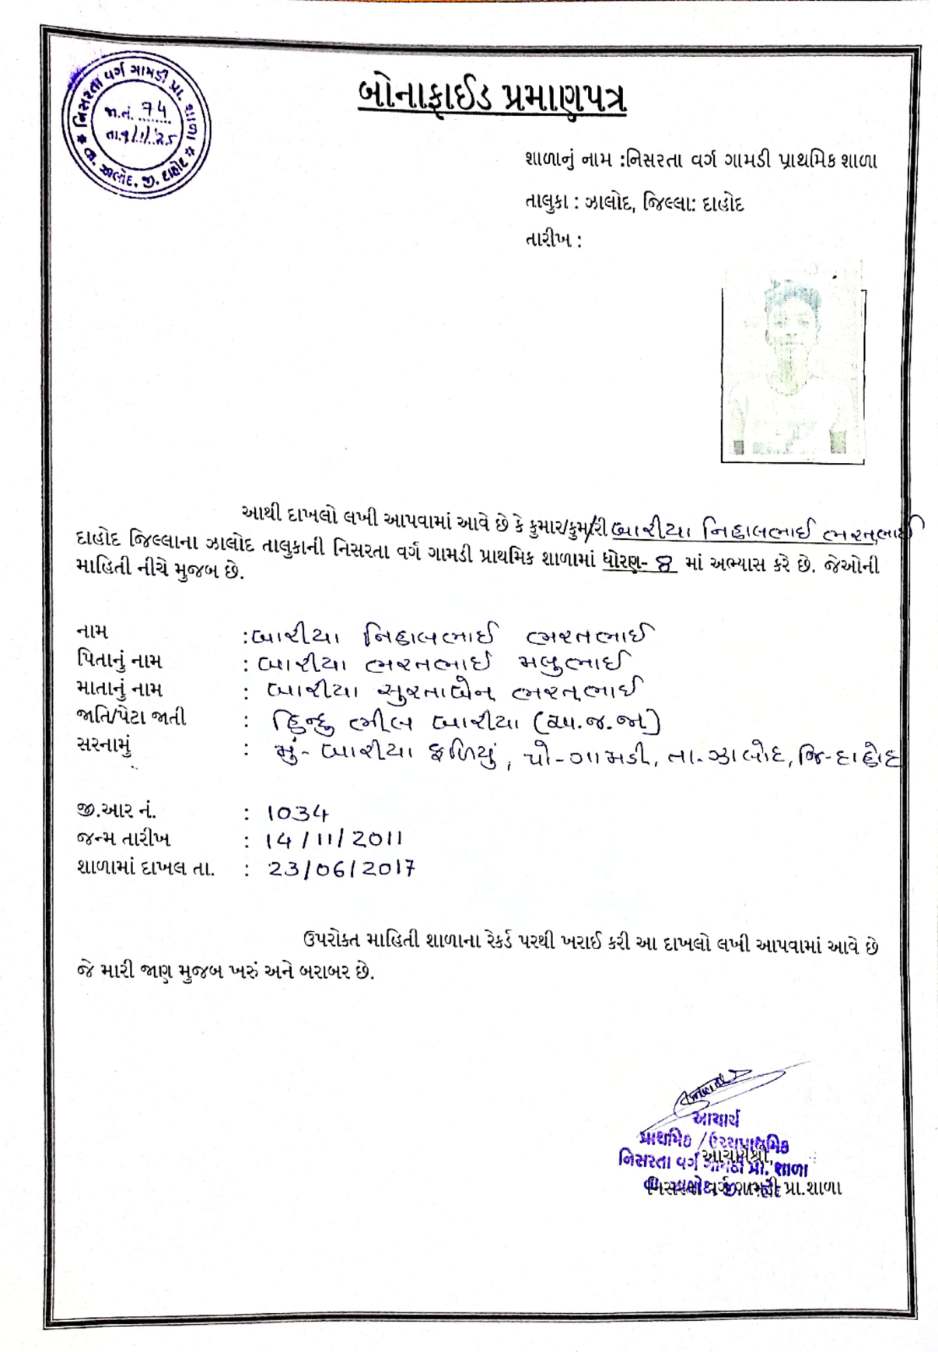 બોનાફાઈડ પ્રમાણપત્ર
નિસરતા વર્ગ ગામડી પ્રા. શાળા
જા.નં. 74
તા. 1/1/25
શાળાનું નામ :નિસરતા વર્ગ ગામડી પ્રાથમિક શાળા
તાલુકા : ઝાલોદ, જિલ્લા: દાહોદ
તારીખ :
આથી દાખલો લખી આપવામાં આવે છે કે કુમાર/કુમારી બારીયા નિહાલભાઈ ભરતભાઈ
દાહોદ જિલ્લાના ઝાલોદ તાલુકાની નિસરતા વર્ગ ગામડી પ્રાથમિક શાળામાં ધોરણ- 8 માં અભ્યાસ કરે છે. જેઓની
માહિતી નીચે મુજબ છે.
નામ :બારીયા નિહાલભાઈ ભરતભાઈ
પિતાનું નામ : બારીયા ભરતભાઈ મલુભાઈ
માતાનું નામ : બારીયા સુરતાબેન ભરતભાઈ
જાતિ/પેટા જાતી : હિન્દુ ભીલ બારીયા (અ.જ.જા)
સરનામું : મું- બારીયા ફળિયું, પો-ગામડી, તા-ઝાલોદ, જિ-દાહોદ
જી.આર નં. : 1034
જન્મ તારીખ : 14/11/2011
શાળામાં દાખલ તા. : 23/06/2017
ઉપરોક્ત માહિતી શાળાના રેકર્ડ પરથી ખરાઈ કરી આ દાખલો લખી આપવામાં આવે છે
જે મારી જાણ મુજબ ખરું અને બરાબર છે.
આચાર્ય
પ્રાથમિક /ઉચ્ચપ્રાથમિક
આચાર્યશ્રી,
નિસરતા વર્ગ ગામડી પ્રા. શાળા
નિસરતા વર્ગ ગામડી પ્રા.શાળા